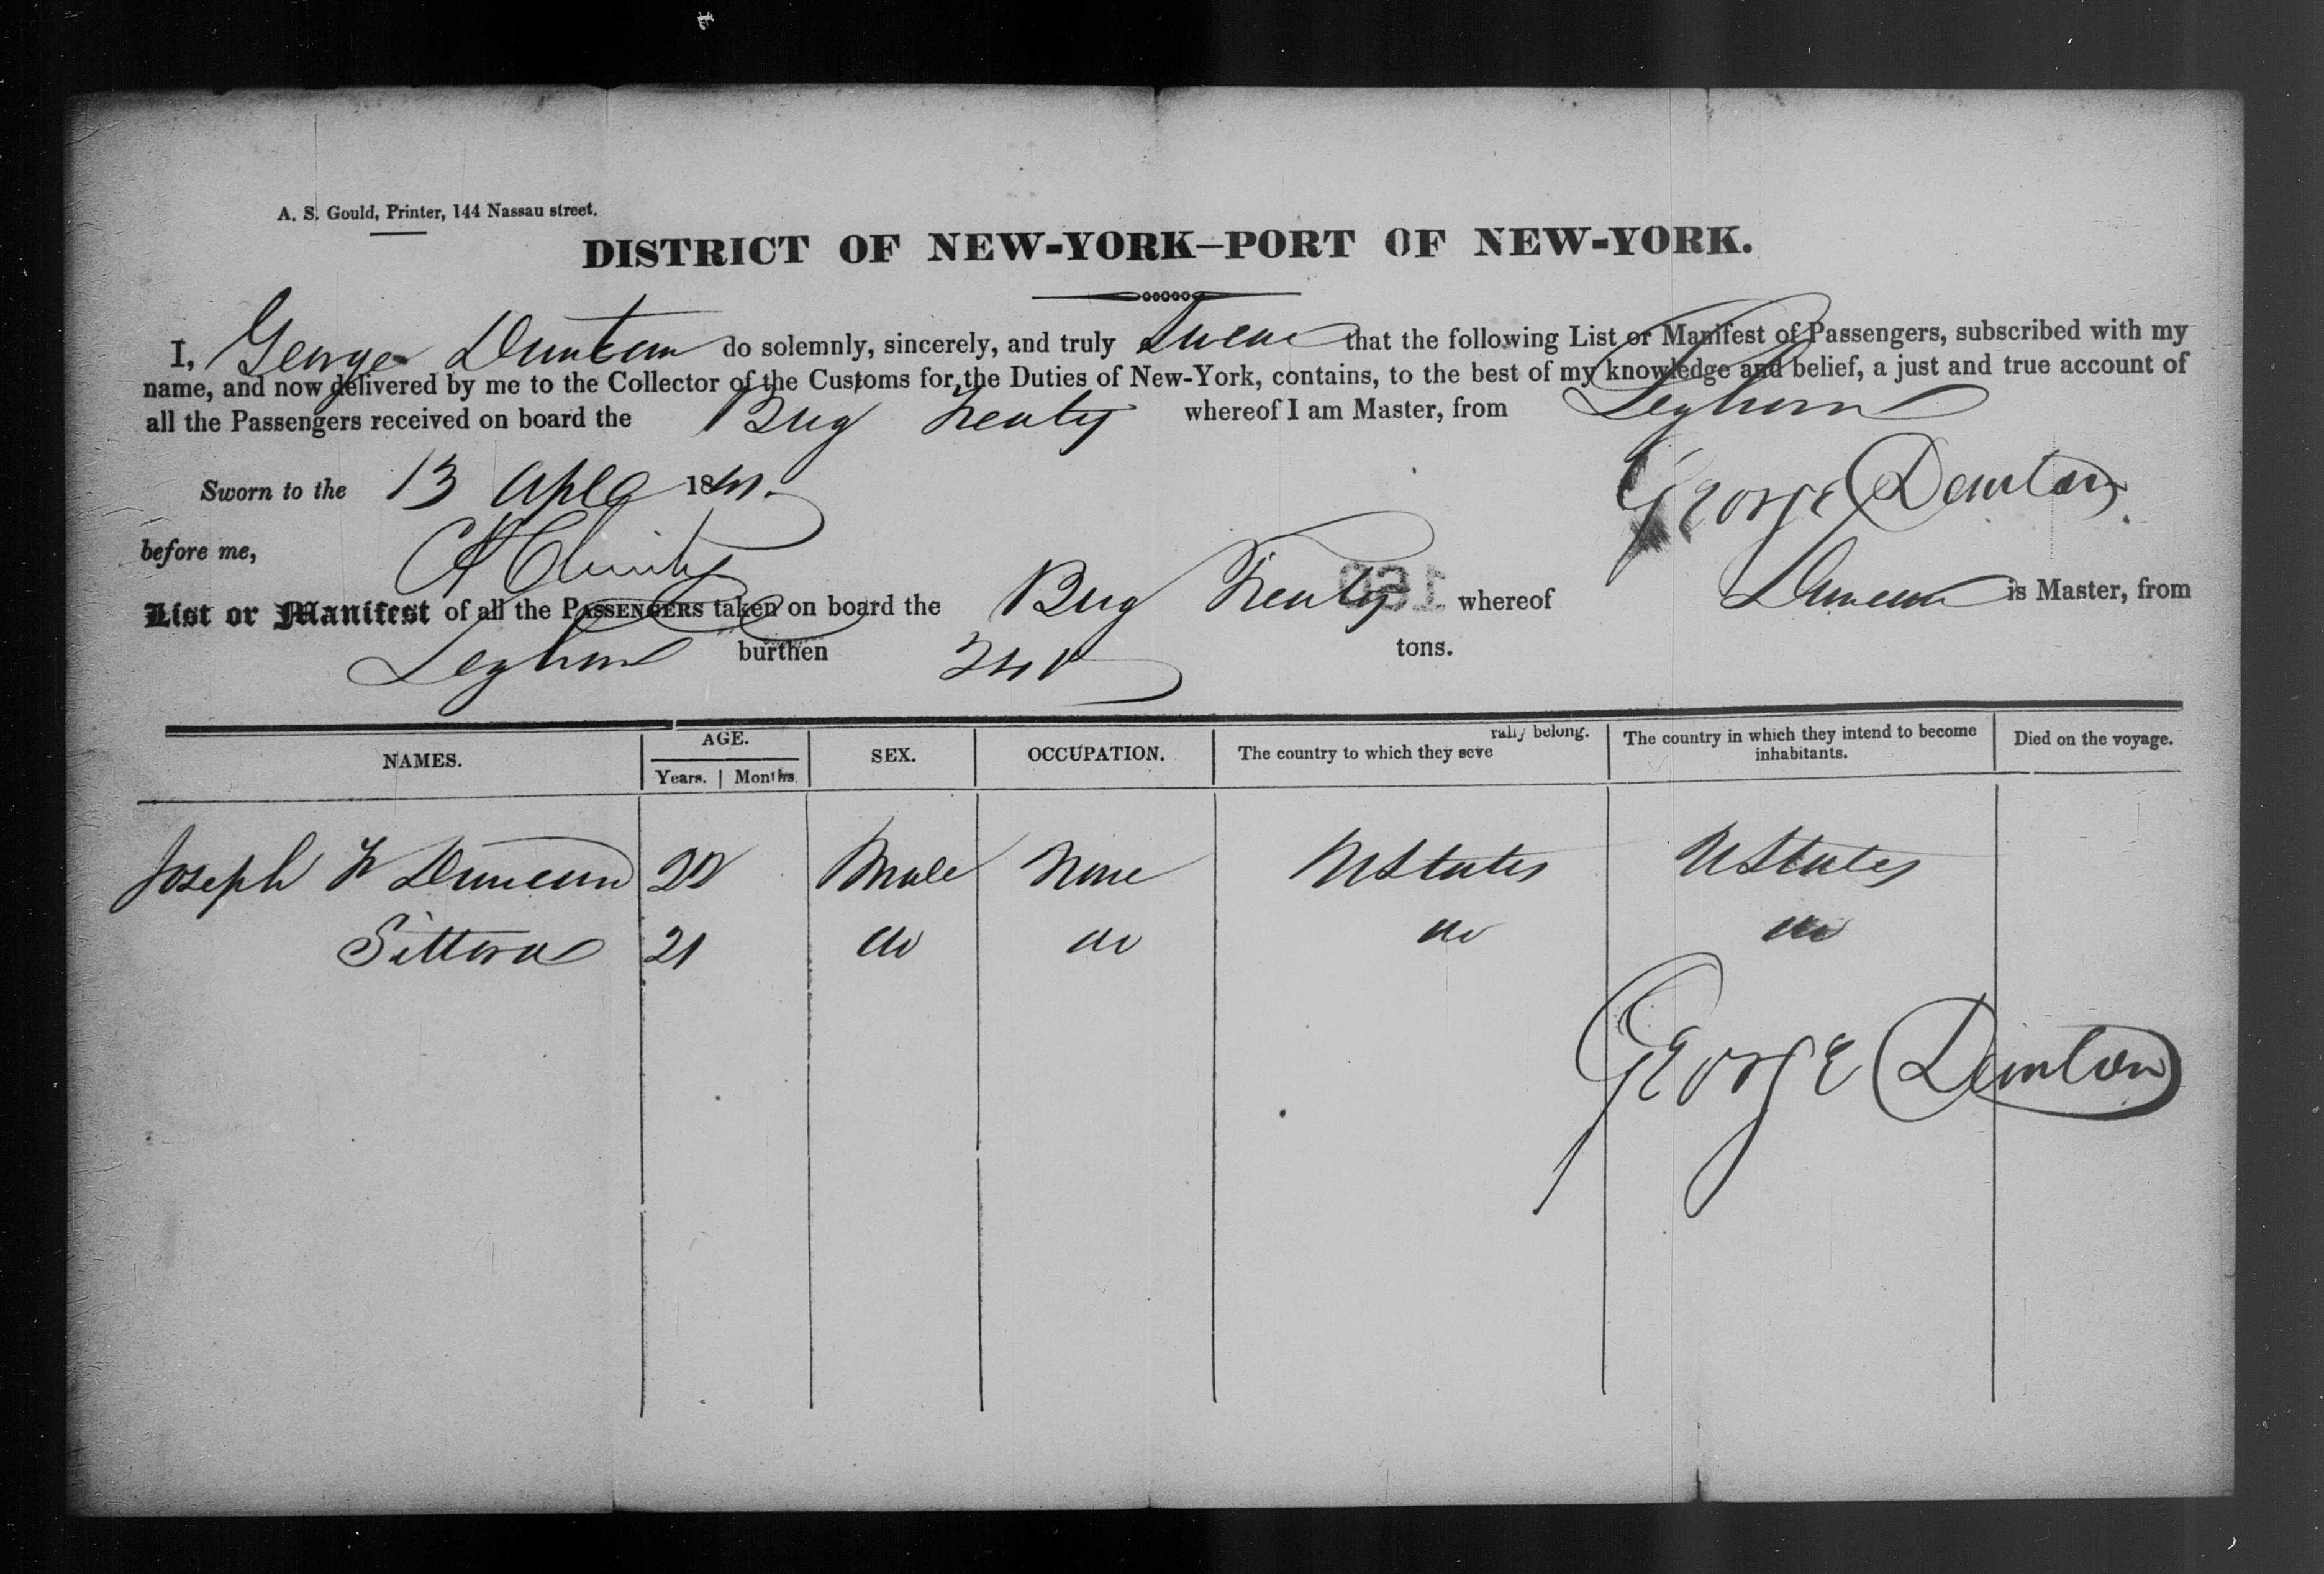 A. S. Gould, Printer, 144 Nassau street.
DISTRICT OF NEW-YORK—PORT OF NEW-YORK.
I, George Dunton do solemnly, sincerely, and truly Swear that the following List or Manifest of Passengers, subscribed with my
name, and now delivered by me to the Collector of the Customs for the Duties of New-York, contains, to the best of my knowledge and belief, a just and true account of
all the Passengers received on board the Brig Treaty whereof I am Master, from Leghorn
Sworn to the 13 Apl 1841.
George Dunton
before me,
List or Manifest of all the PASSENGERS taken on board the Brig Treaty whereof Duncan is Master, from
Leghorn burthen tons.
NAMES. AGE. SEX. OCCUPATION. The country to which they severally belong. The country in which they intend to become inhabitants. Died on the voyage.
Years. Months.
Joseph W Duncan 22 Male None UStates UStates
21 do do do do
George Dunton